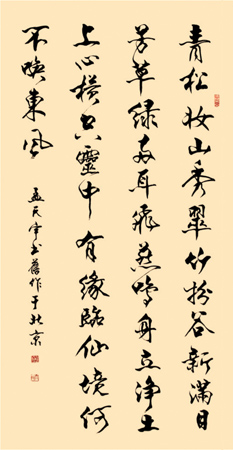 青松妆山秀翠竹扮谷新满目
芳草绿耳飛燕鸣身立净土
上心横空靈中有缘臨仙境何
不唤東風
孟民宇书舊作于北京